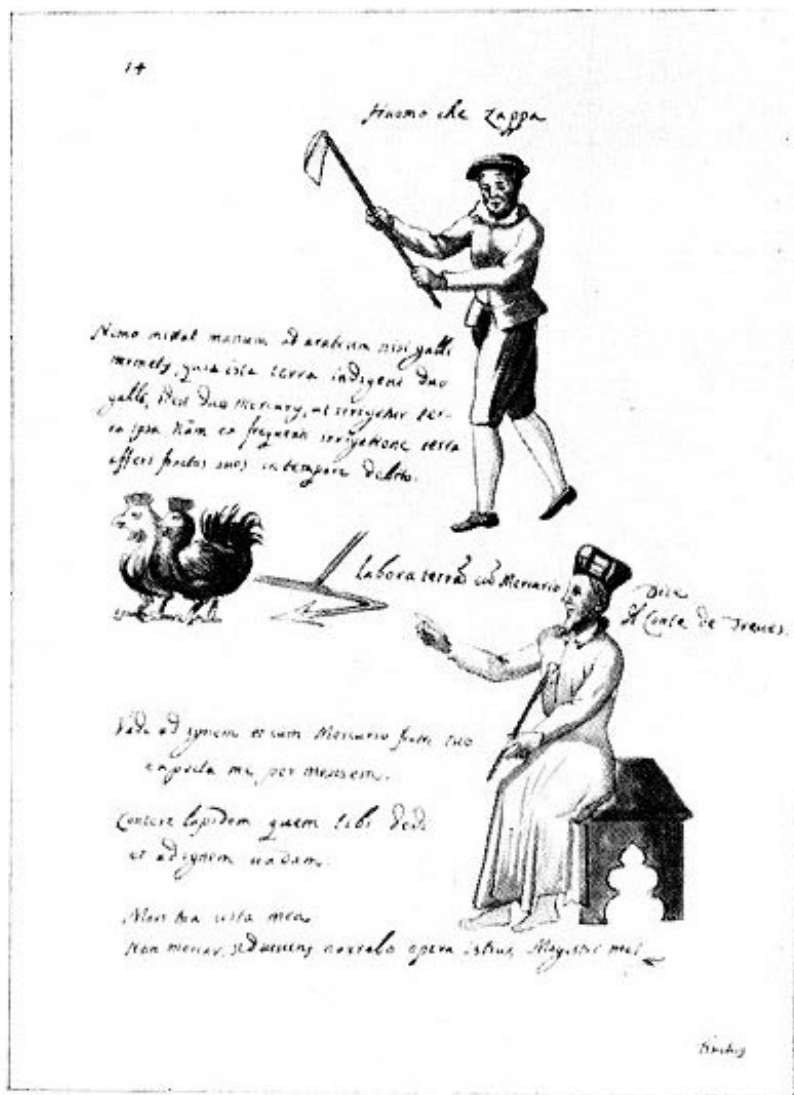 14
Huomo che zappa
Nemo mittat manum ad aratrum nisi galli
gemelli, quia ista terra indigent duo
galli, idest duo Mercury, ut irrigetur ter-
ra ipsa. Nam ex frequenti irrigatione terra
affert fructus suos in tempore debito.
Labora terrã cũ Mercurio
Dice
il Conte de Treues.
Vade ad ignem et cum Mercurio fratre tuo
copula me per mensem.
Contere lapidem quem tibi dedi
et ad ignem uadam.
Mors tua uita mea
Non moriar, sed uiuens narrabo opera istius Magistri mei